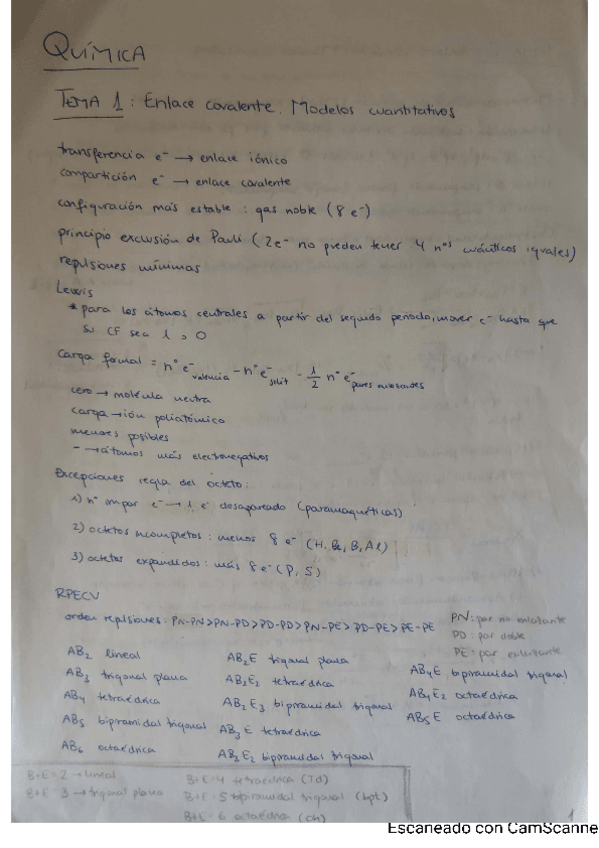 QUÍMICA
TEMA 1: Enlace covalente. Modelos cuantitativos
transferencia e⁻ → enlace iónico
compartición e⁻ → enlace covalente
configuración más estable: gas noble (8 e⁻)
principio exclusión de Pauli (2e⁻ no pueden tener 4 nºs cuánticos iguales)
repulsiones mínimas
Lewis
* para los átomos centrales a partir del segundo período, mover e⁻ hasta que
su CF sea 1 o 0
Carga formal = nº e⁻ valencia - nº e⁻ solit - 1/2 nº e⁻ pares enlazantes
cero → molécula neutra
carga → ión poliatómico
menores posibles
- → átomos más electronegativos
Excepciones regla del octeto:
1) nº impar e⁻ → 1 e⁻ desapareado (paramagnéticas)
2) octetos incompletos: menos 8 e⁻ (H, Be, B, Al)
3) octetos expandidos: más 8 e⁻ (P, S)
RPECV
orden repulsiones: PN-PN>PN-PD>PD-PD>PN-PE>PD-PE>PE-PE
PN: par no enlazante
PD: par doble
PE: par enlazante
AB₂ lineal
AB₃ trigonal plana
AB₄ tetraédrica
AB₅ bipiramidal trigonal
AB₆ octaédrica
AB₂E trigonal plana
AB₂E₂ tetraédrica
AB₂E₃ bipiramidal trigonal
AB₃E tetraédrica
AB₃E₂ bipiramidal trigonal
AB₄E bipiramidal trigonal
AB₄E₂ octaédrica
AB₅E octaédrica
B+E=2 → lineal
B+E=3 → trigonal plana
B+E=4 tetraédrica (Td)
B+E=5 bipiramidal trigonal (bpt)
B+E=6 octaédrica (Oh)
1
Escaneado con CamScanne